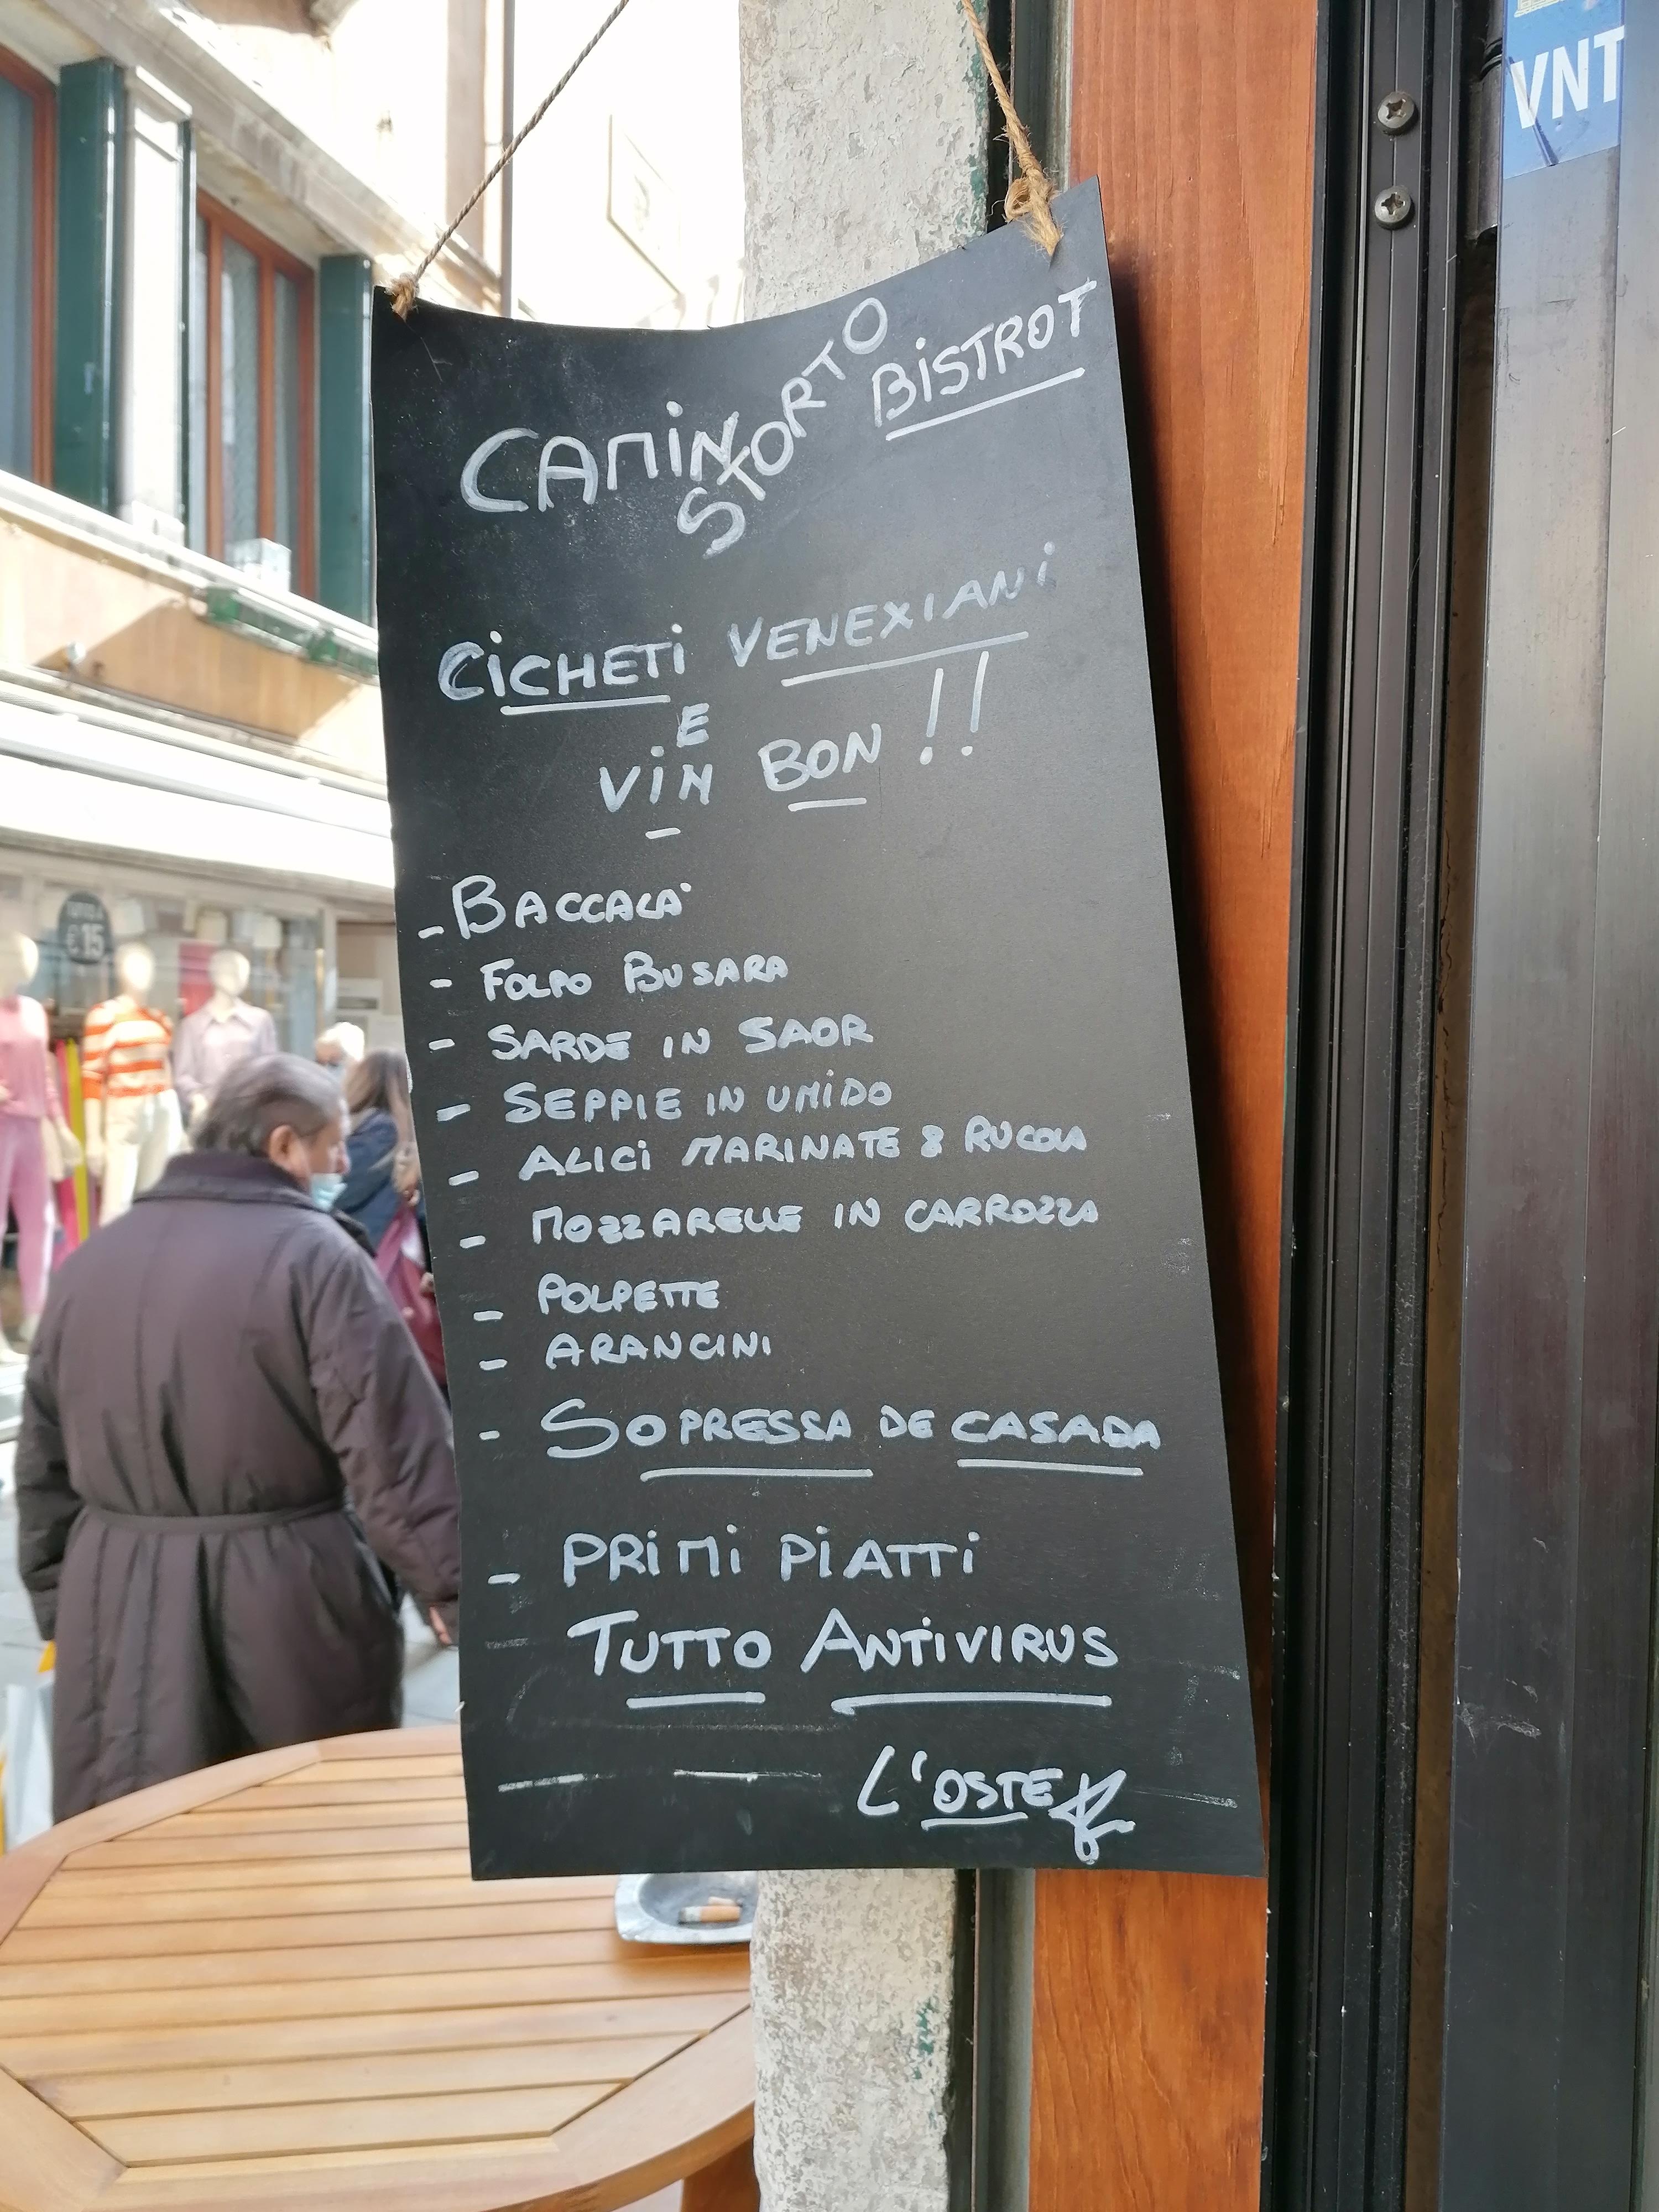 CAMIN STORTO BISTROT
CICHETI VENEXIANI
E
VIN BON !!
- BACCALA'
- FOLPO BUSARA
- SARDE IN SAOR
- SEPPIE IN UMIDO
- ALICI MARINATE & RUCOLA
- MOZZARELLE IN CARROZZA
- POLPETTE
- ARANCINI
- SOPRESSA DE CASADA
- PRIMI PIATTI
TUTTO ANTIVIRUS
L'OSTE
VNT
€15